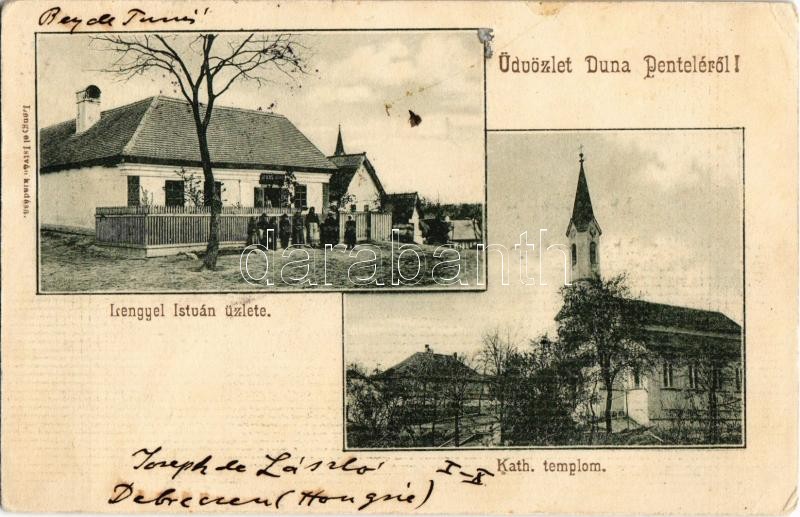 Üdvözlet Duna Penteléről!
Lengyel István kiadása.
Lengyel István üzlete.
darabanth
Kath. templom.
Joseph de László I-X
Debreczen (Hongrie)